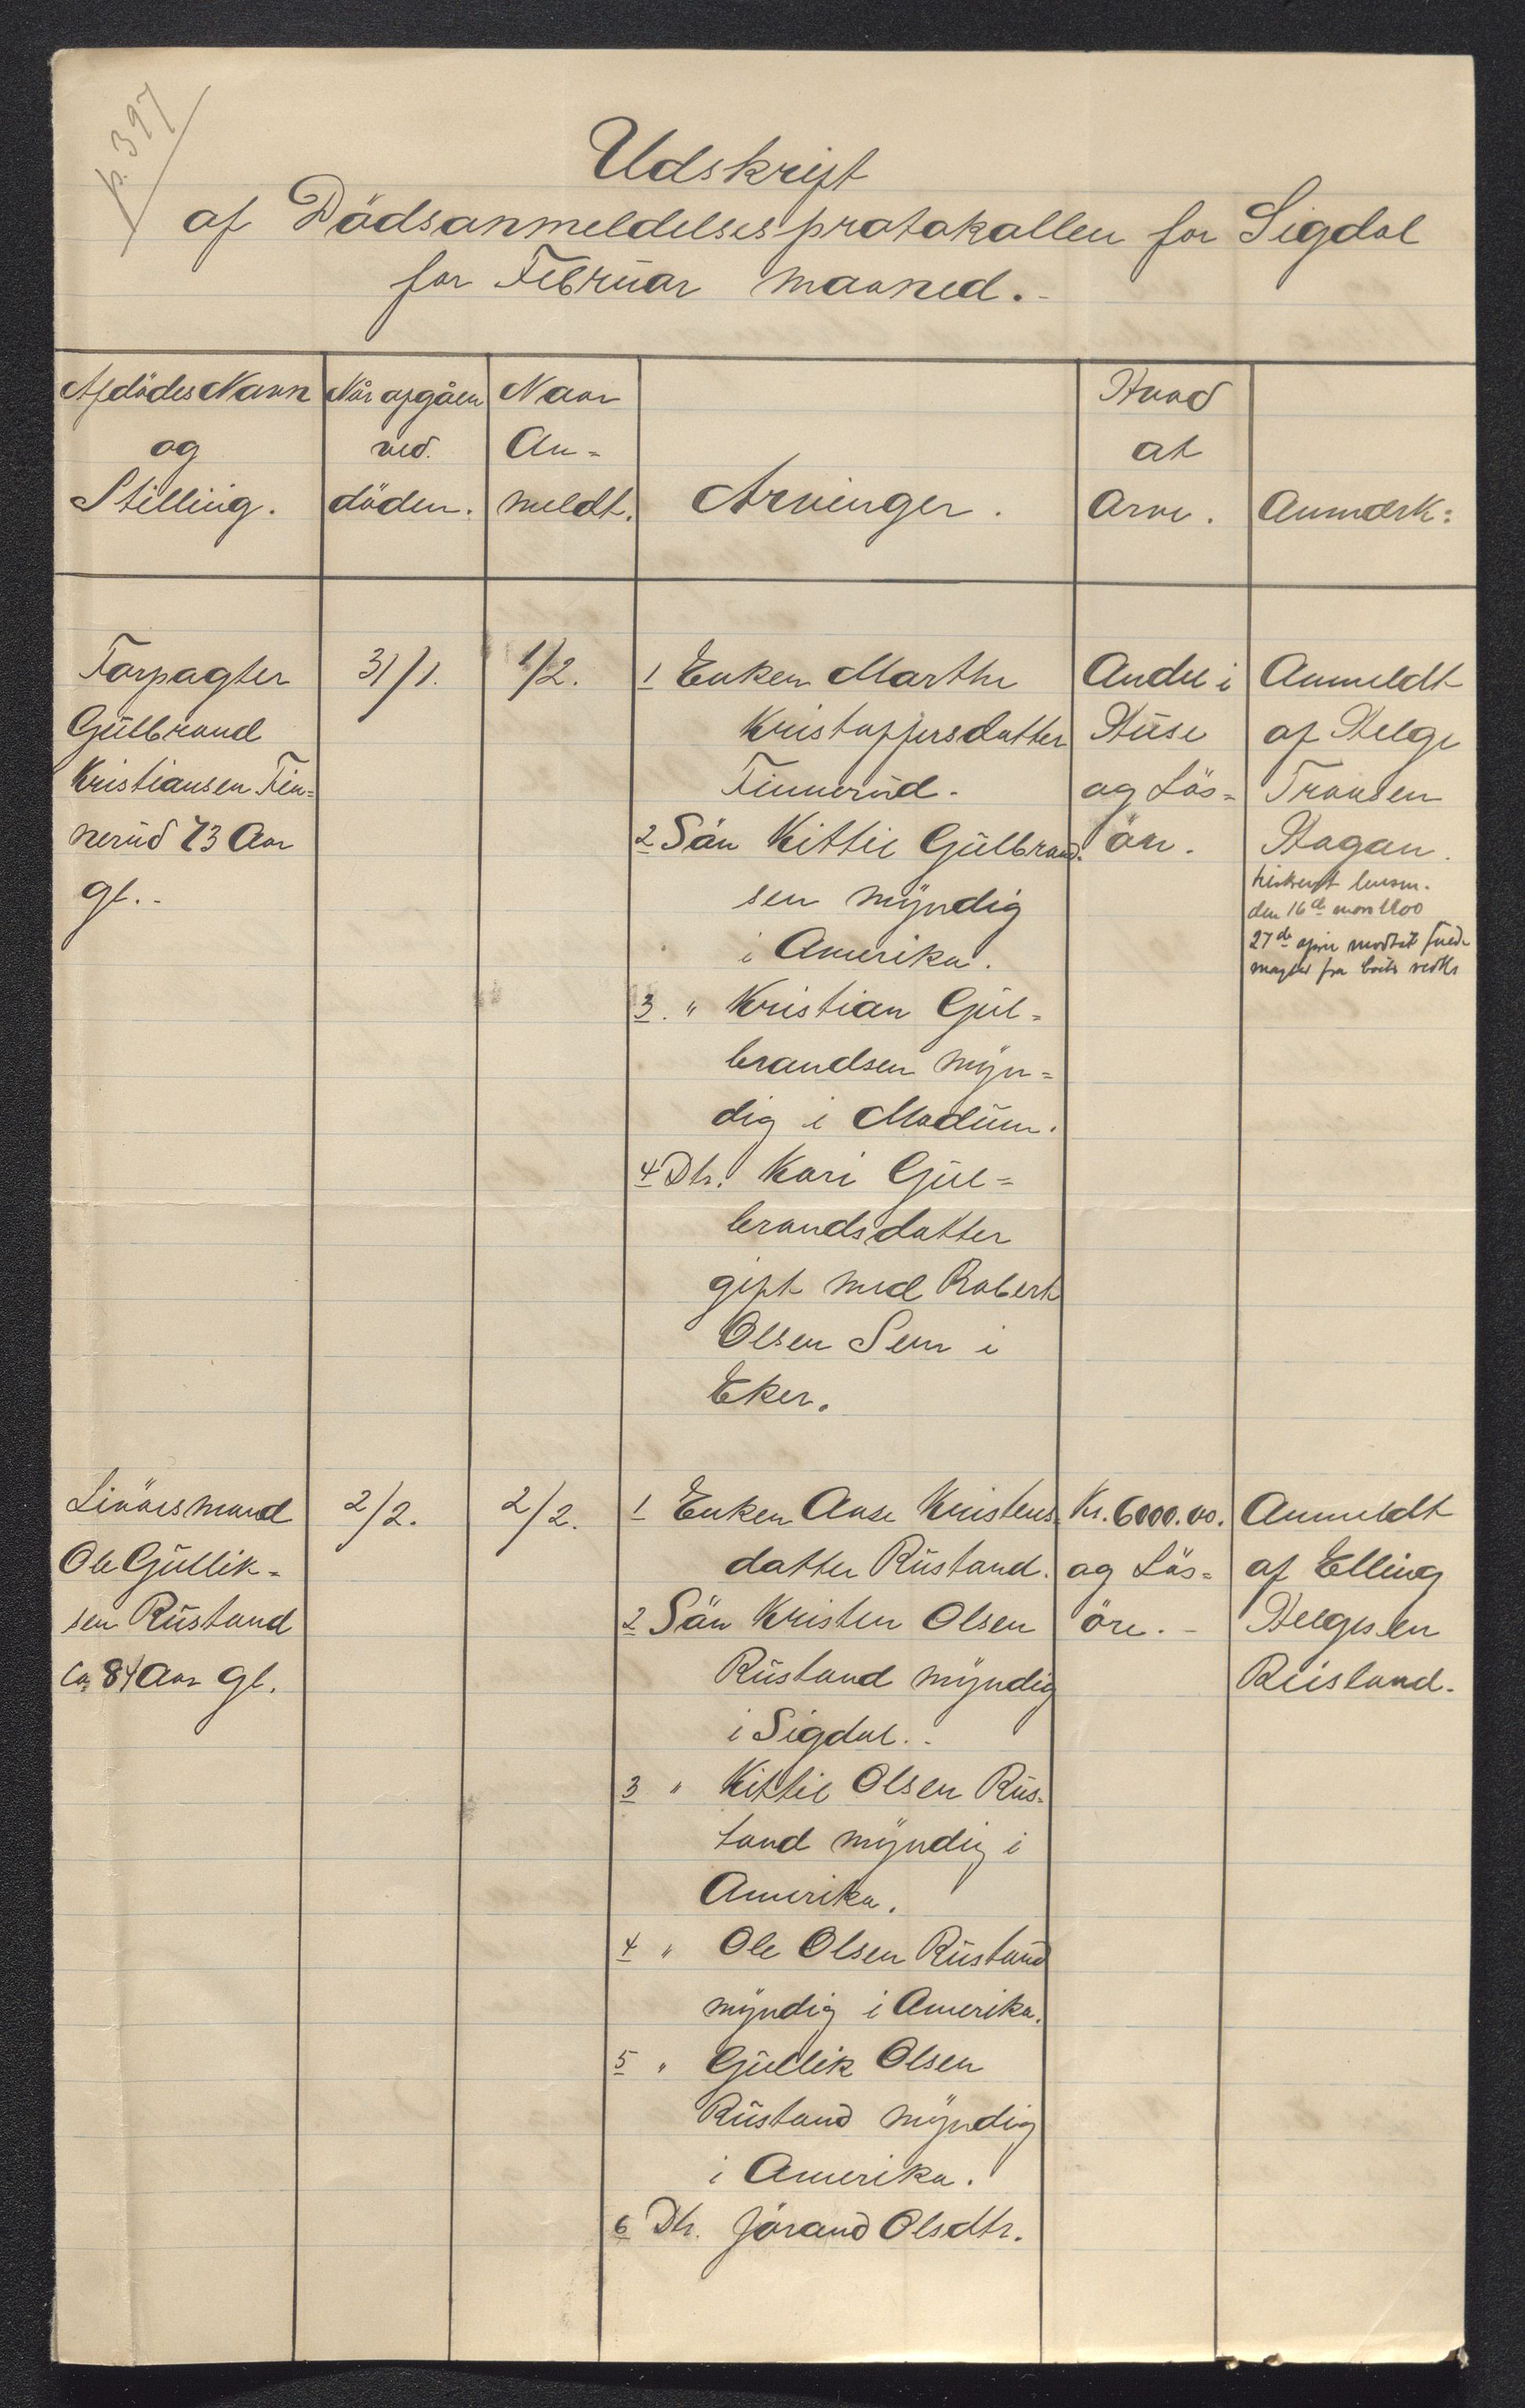 p. 397
Udskrift
af Dödsanmeldelsesprotokollen for Sigdal
for Februar maaned.-
Afdödes Navn
og
Stilling.
Når afgåen
ved
döden.
Naar
An-
meldt.
Arvinger.
Hvad
at
Arve.
Anmærk:
Forpagter
Gulbrand
Kristiansen Fin-
nerud 73 Aar
gl..
31/1.
1/2.
1 Enken Marthe
Kristoffersdatter
Finnerud.
2 Sön Kittil Gulbrand-
sen myndig
i Amerika.
3. " Kristian Gul-
brandsen myn-
dig i Modum.
4 Dtr. Kari Gul-
brandsdatter
gift med Robert
Olsen Sem i
Eker.
Andel i
Huse
og Lös-
öre.
Anmeldt
af Helge
Fransen
Hagan.
den 16de
27de fra
Livöresmand
Ole Gullik-
sen Rustand
ca 84 Aar gl.
2/2.
2/2.
1 Enken Aase Kristens-
datter Rustand.
2 Sön Kristen Olsen
Rustand myndig
i Sigdal..
3 " Kittil Olsen Rus-
tand myndig i
Amerika.
4 " Ole Olsen Rustand
myndig i Amerika.
5 " Gullik Olsen
Rustand myndig
i Amerika.
6 Dtr. Jörand Olsdtr.
Kr. 6000.00.
og Lös-
öre.-
Anmeldt
af Elling
Helgesen
Rustand.